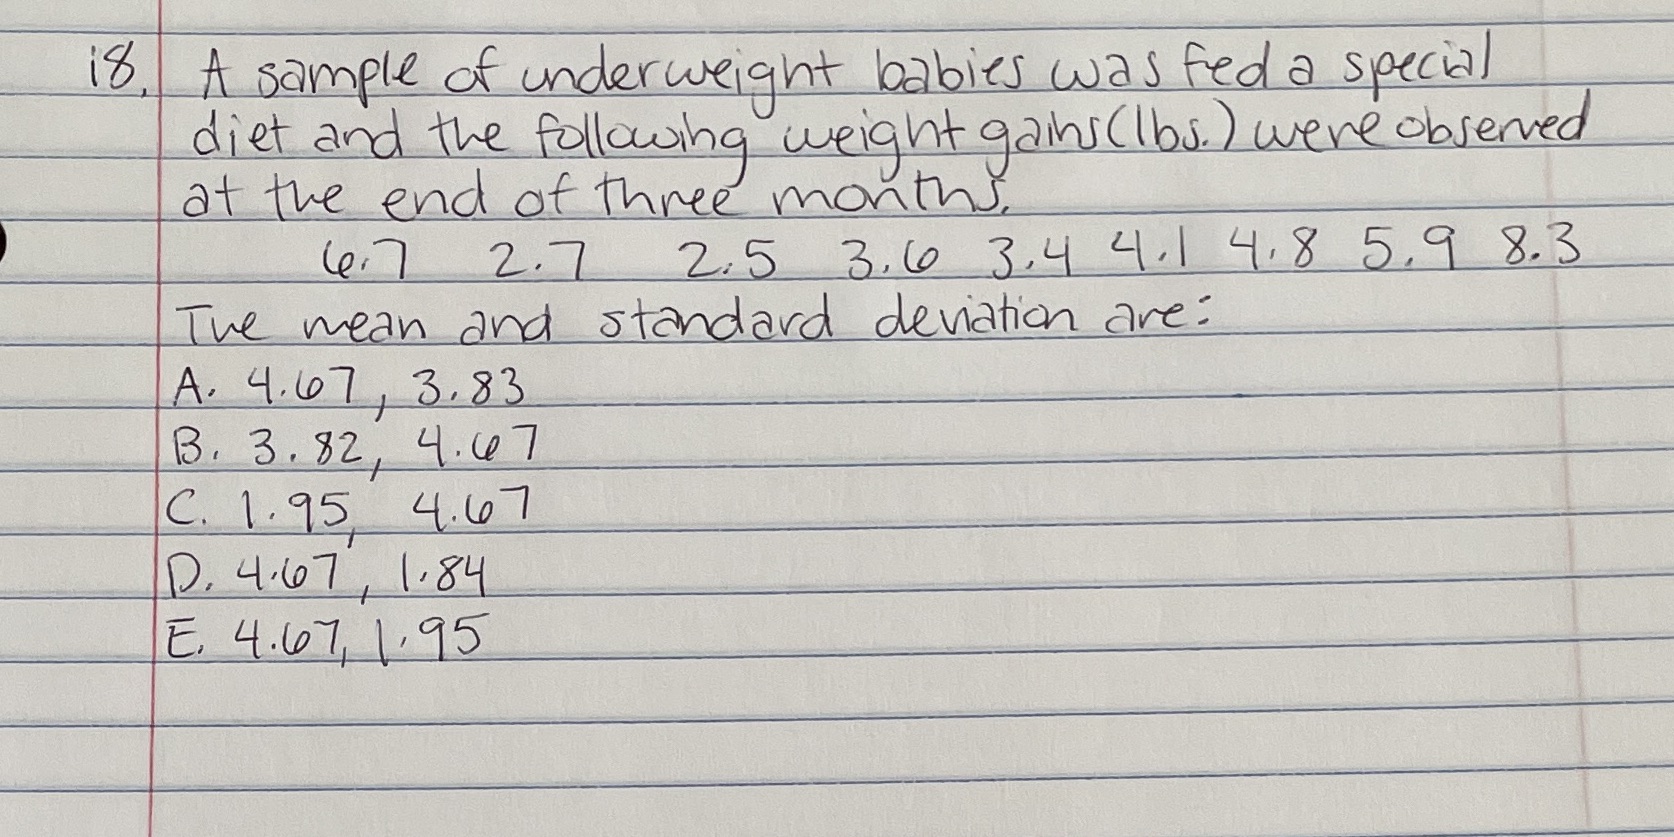 18. A sample of underweight babies was fed a special
diet and the following weight gains (lbs.) were observed
at the end of three months.
6.7 2.7 2.5 3.6 3.4 4.1 4.8 5.9 8.3
The mean and standard deviation are:
A. 4.67, 3.83
B. 3.82, 4.67
C. 1.95, 4.67
D. 4.67, 1.84
E. 4.67, 1.95